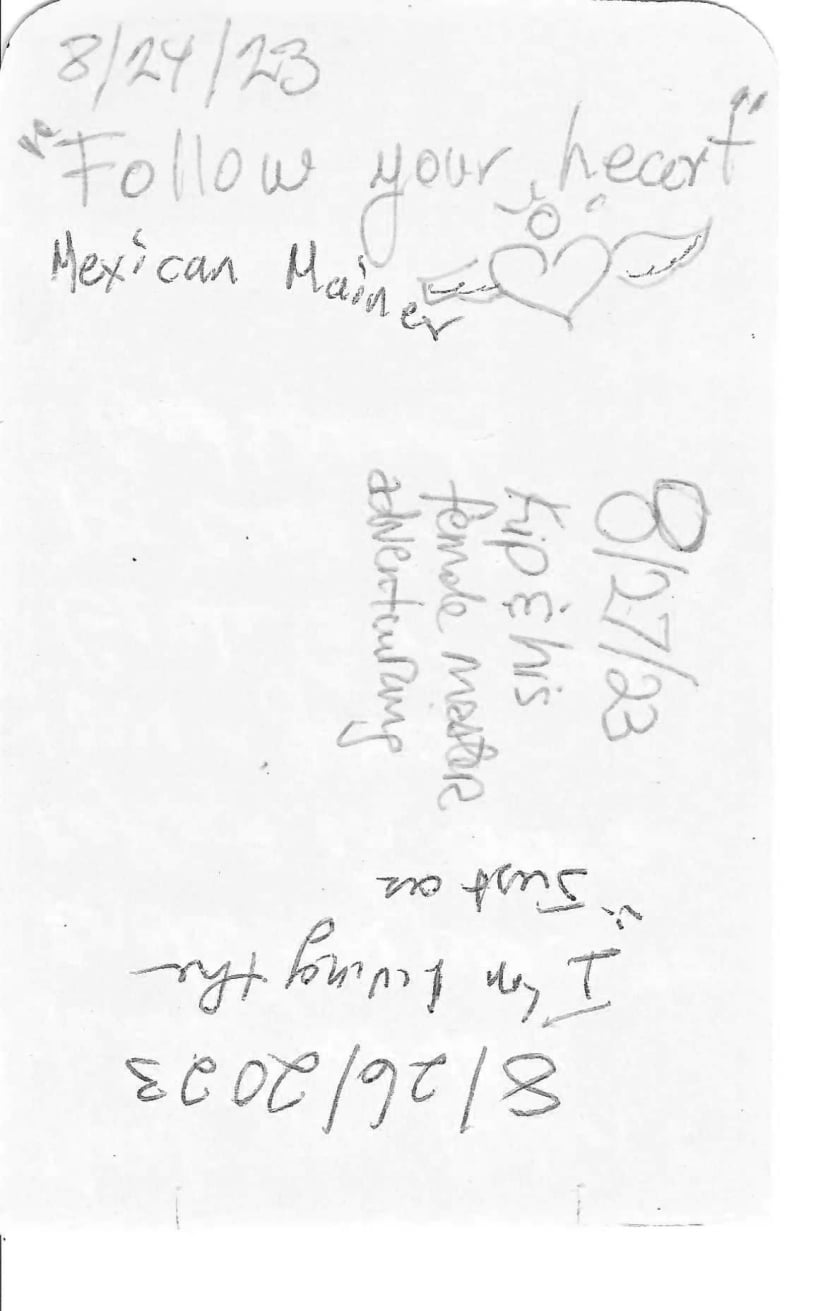 8/24/23
"Follow your heart"
Mexican Mainer
8/27/23
Kip & his
female master
adventuring
8/26/2023
I'm living the
"Just as